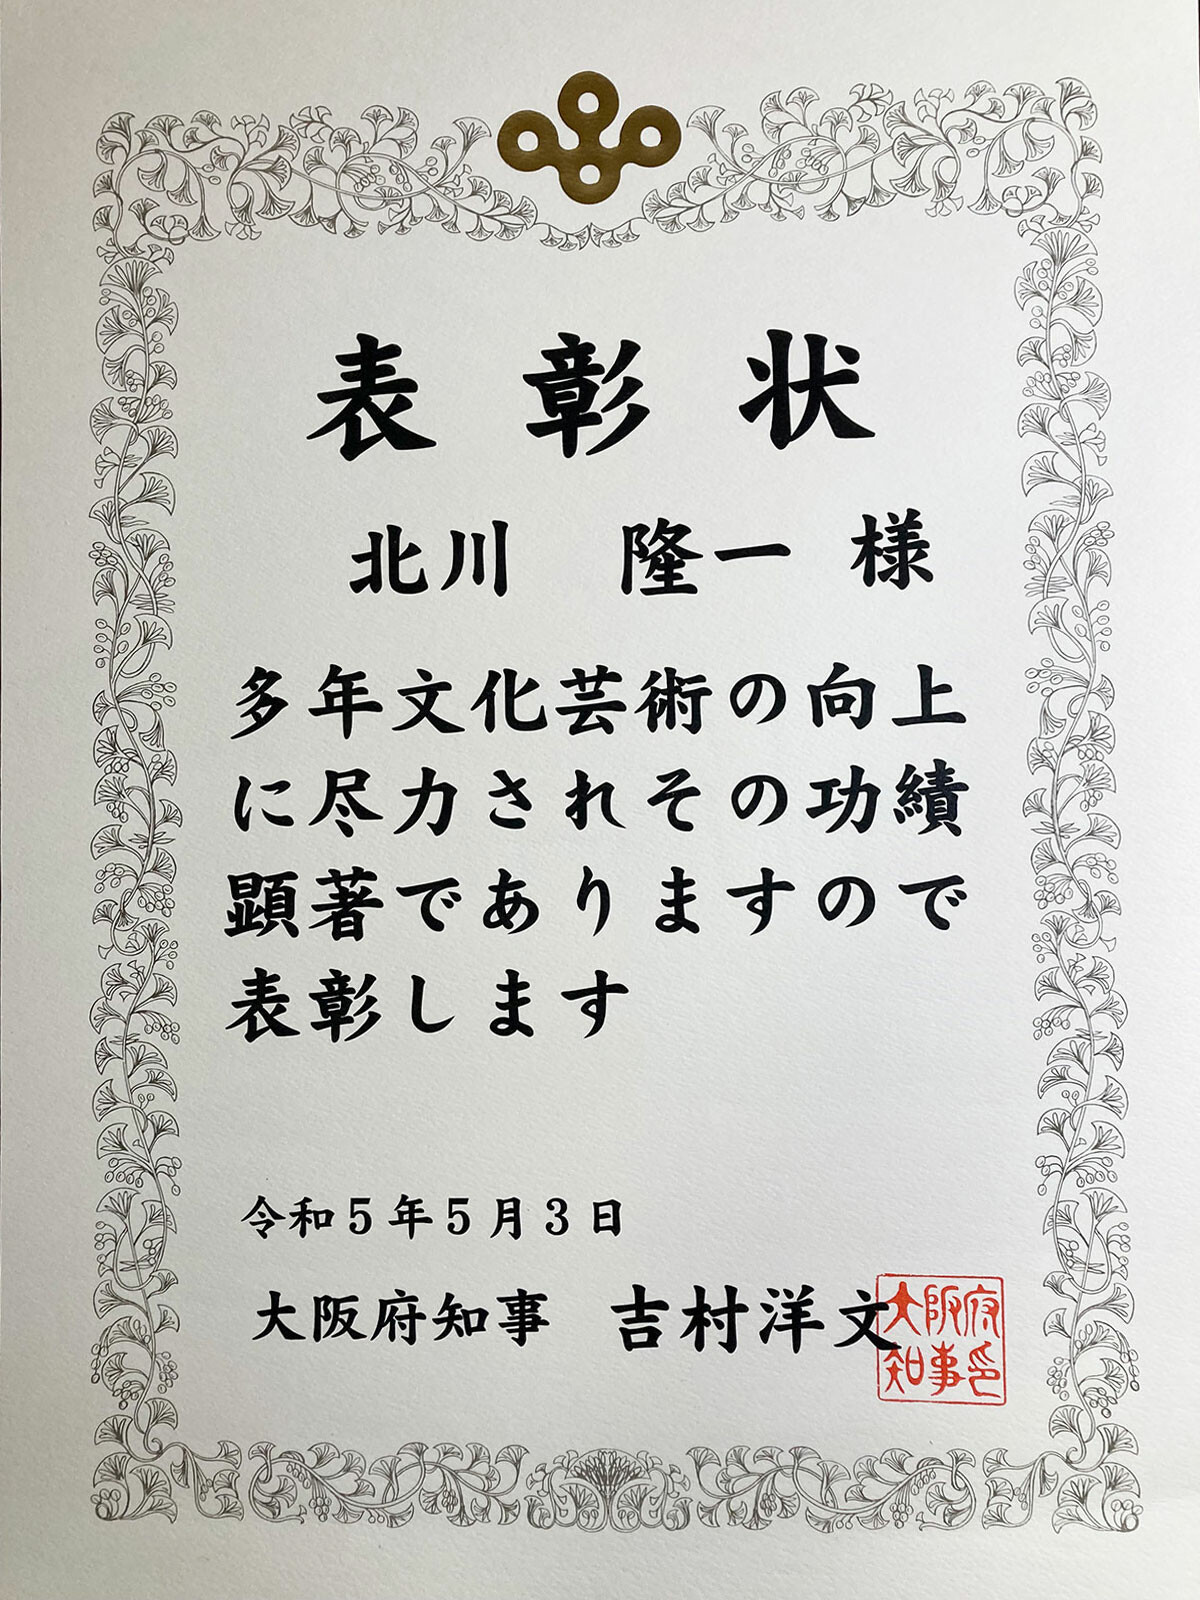 表彰状
北川 隆一 様
多年文化芸術の向上
に尽力されその功績
顕著でありますので
表彰します
令和5年5月3日
大阪府知事 吉村洋文
大阪府
知事印